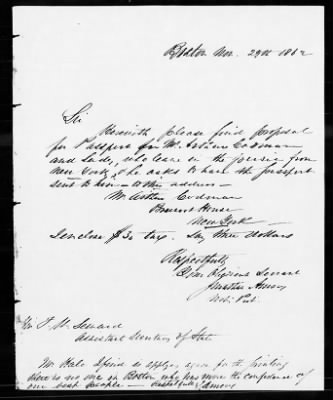 Boston Nov. 29th 1862
Sir
Herewith please find proposal
for Passport for Mr. Arthur Codman
and Lady, who leave in the from
New York, he asks to have the passport
sent to him to this address —
Mr. Arthur Codman
Brevoort House
New York
I enclose $3. tax. Say three dollars
Respectfully
Your Obedient Servant
Amory
Not. Pub.
F. W. Seward
Assistant Secretary of State
Mr. Hale again for the
there is no one in Boston who has more the confidence of
our best people — Respectfully Amory